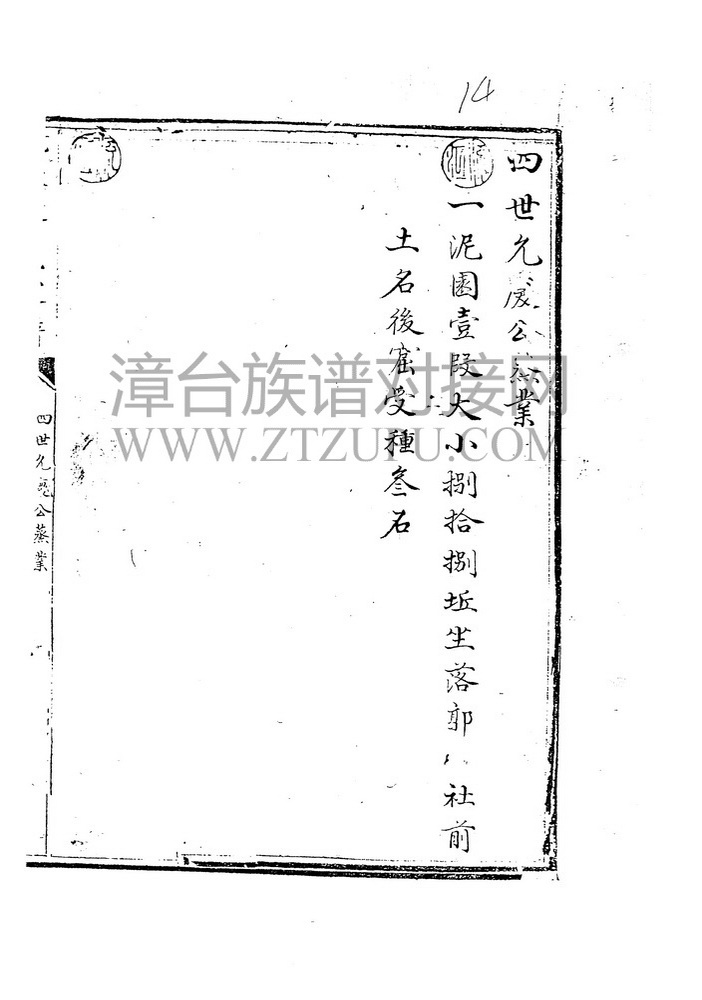 14
四世允公蒸業
一泥園壹段大小捌拾捌坵坐落郭社前
土名後窟受種叁石
四世允亮公蒸業
漳台族谱对接网
WWW.ZTZUPU.COM